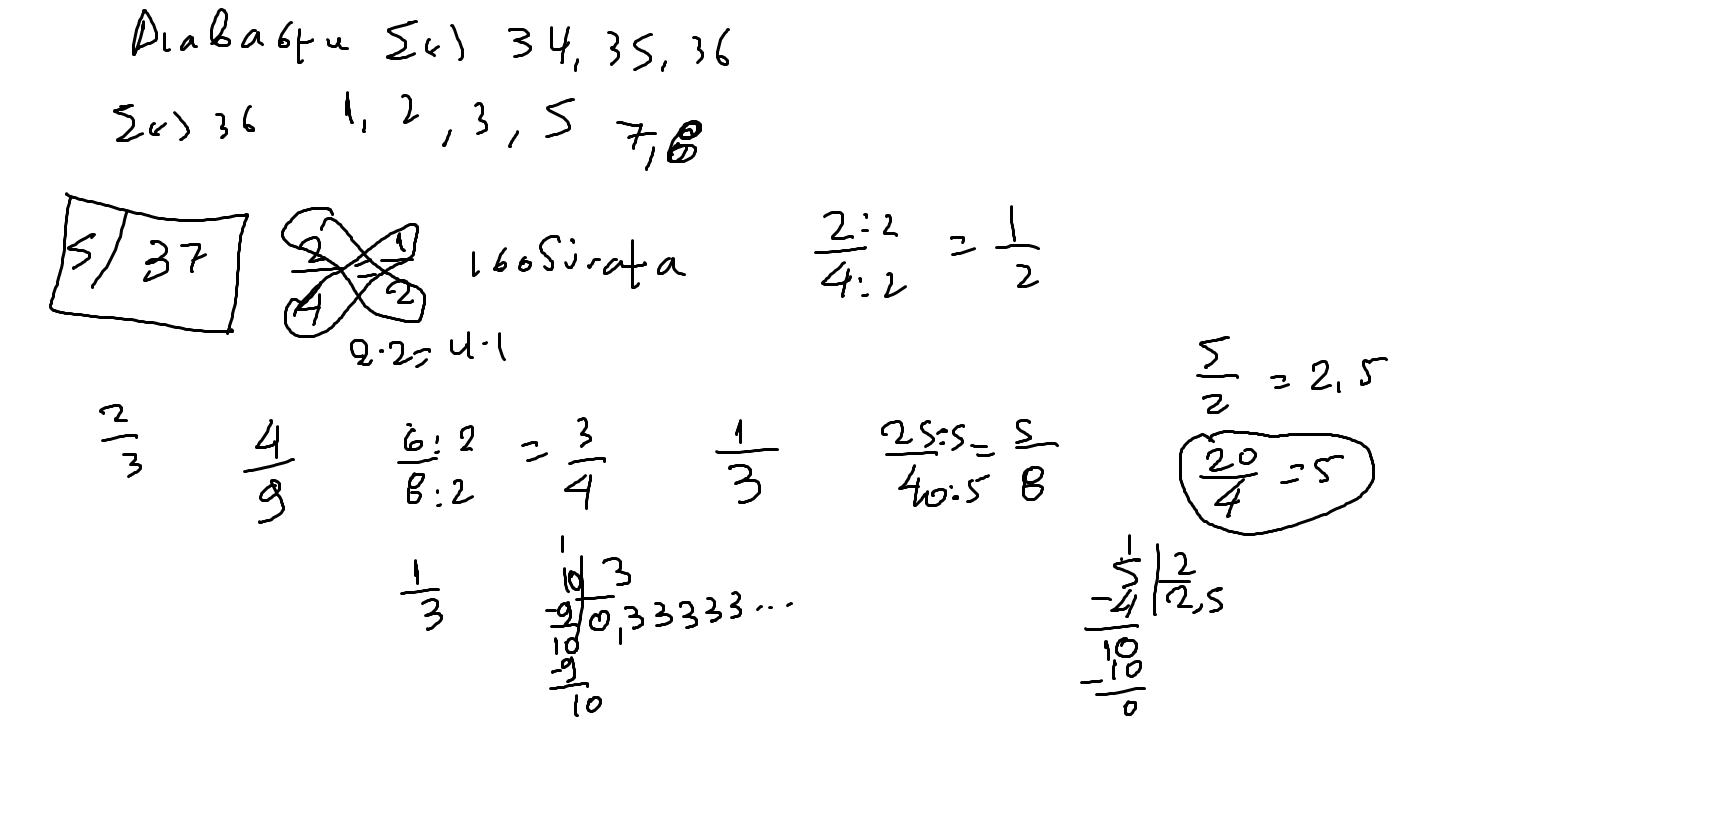 Διαβάστε Σελ 34, 35, 36
Σελ 36 1, 2, 3, 5 7, 8
5/37 2/4 = 1/2 ισοδύναμα 2:2/4:2 = 1/2
2·2=4·1
5/2 = 2,5
2/3 4/9 6:2/8:2 = 3/4 1/3 25:5/40:5 = 5/8 20/4 = 5
1/3
1
10 3
-9 0,33333...
10
-9
10
1
5 2
-4 2,5
10
-10
0